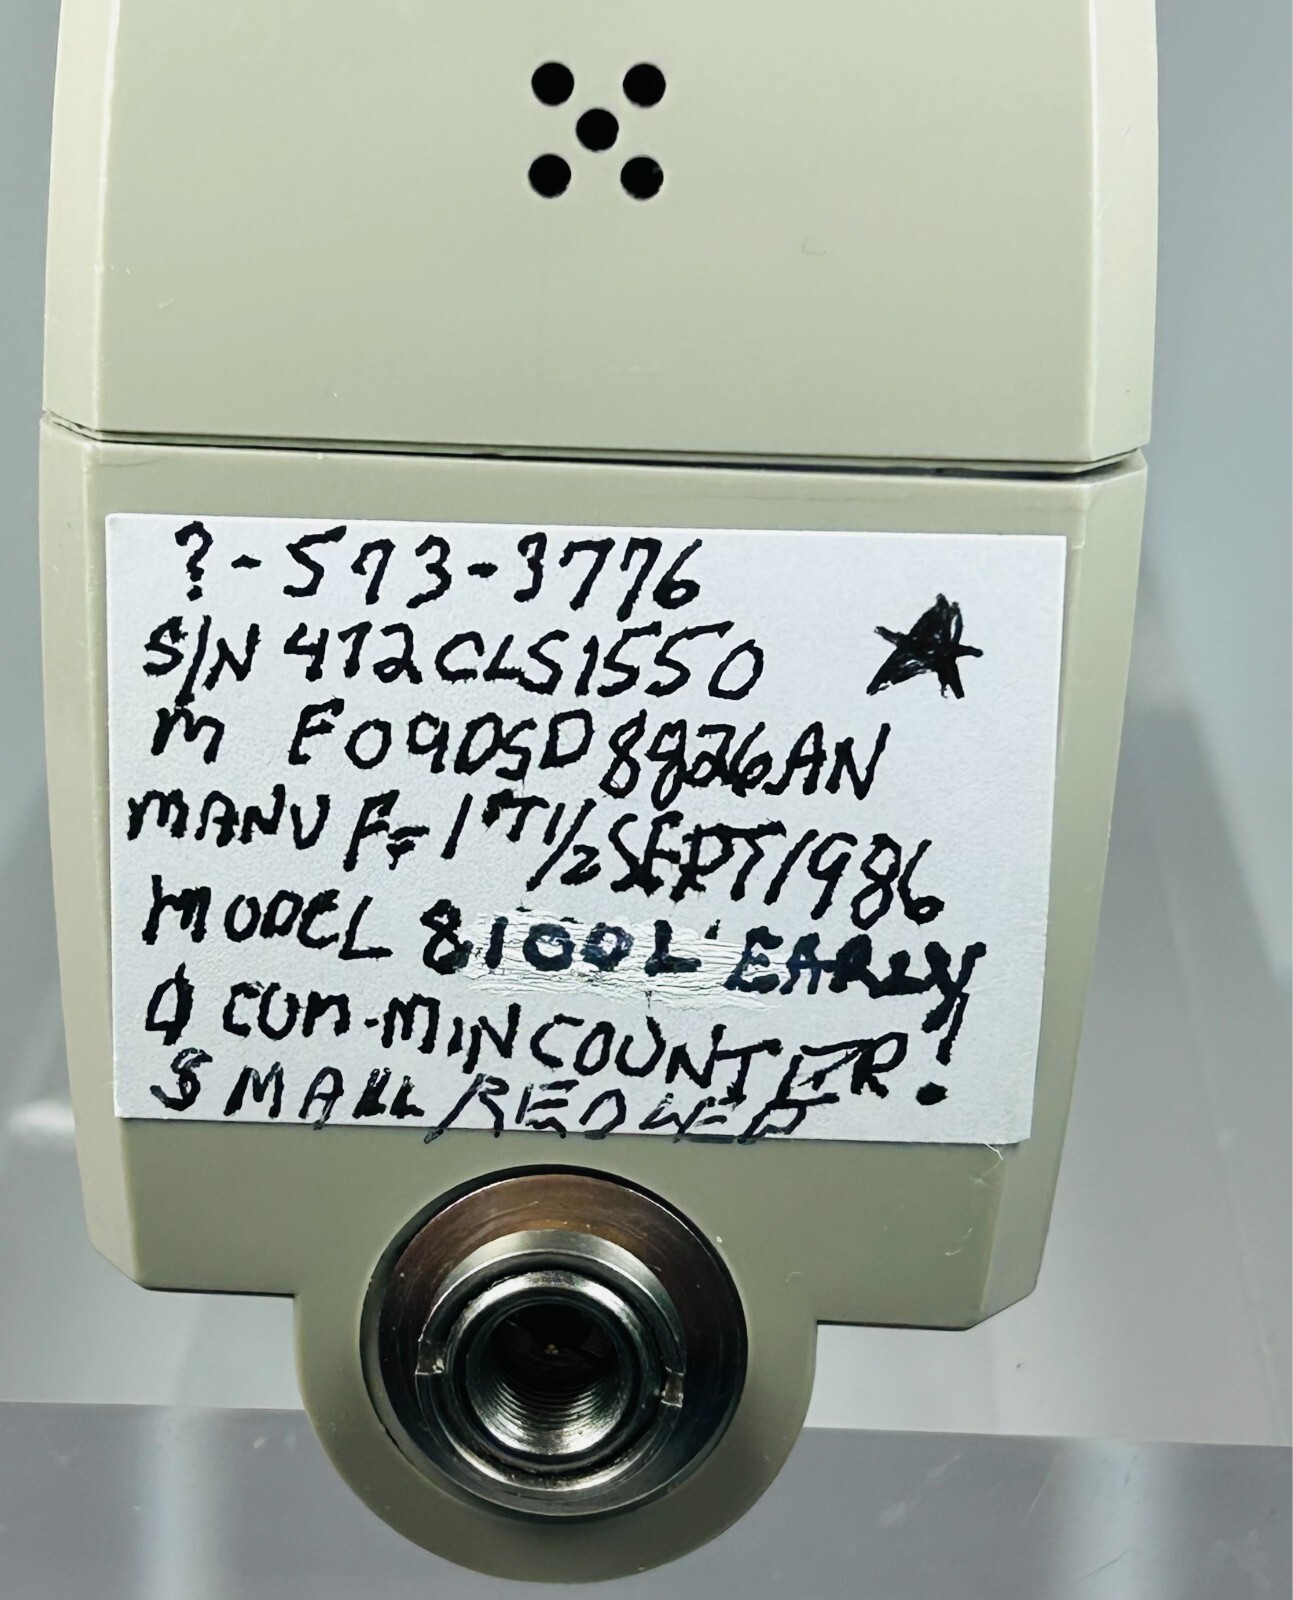 ?-573-3776
S/N 472CLS1550
M E09DSD8826AN
MANUF= 1ST 1/2 SEPT 1986
MODEL 8100L' EARLY
0 CUM-MIN COUNTER!
SMALL/RED WED